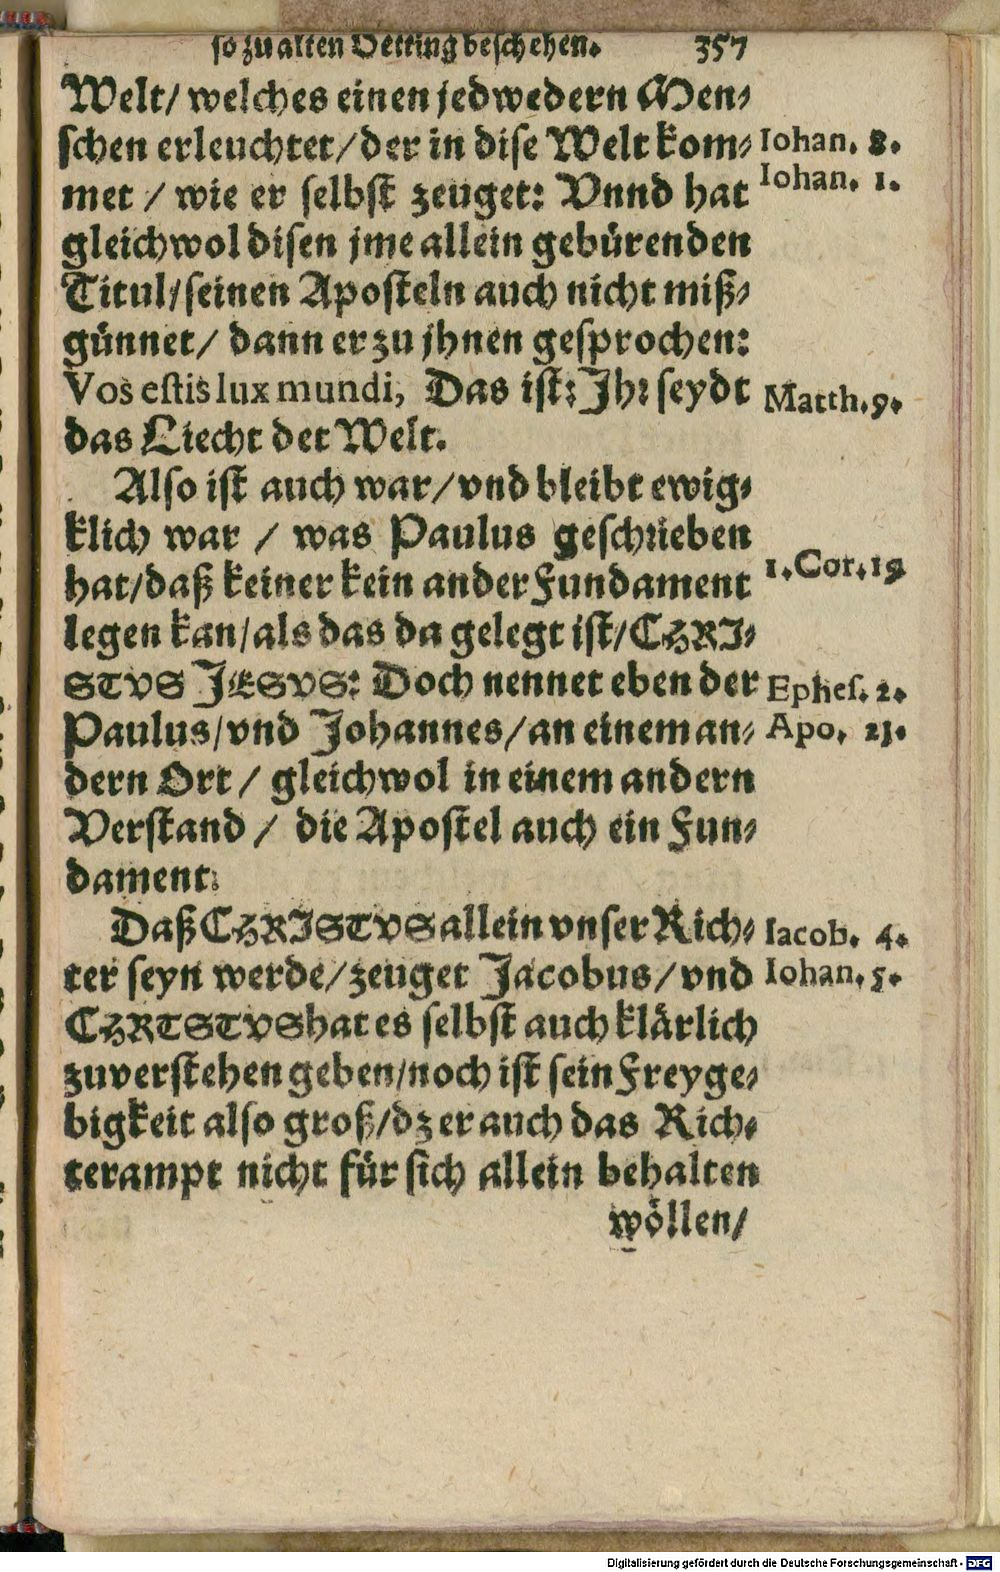 so zu alten Oetting beschehen. 357
Welt/ welches einen jedwedern Men-
schen erleuchtet/ der in dise Welt kom- Iohan. 8.
met / wie er selbst zeuget: Vnnd hat Iohan. 1.
gleichwol disen jme allein gebürenden
Titul/ seinen Aposteln auch nicht miß-
günnet/ dann er zu jhnen gesprochen:
Vos estis lux mundi, Das ist: Jhr seydt Matth. 5.
das Liecht der Welt.
Also ist auch war/ vnd bleibt ewig-
klich war / was Paulus geschrieben
hat/ daß keiner kein ander Fundament 1. Cor.
legen kan/ als das da gelegt ist/ CHRI-
STVS JESVS: Doch nennet eben der Ephes. 2.
Paulus/ vnd Johannes/ an einem an- Apo. 21.
dern Ort / gleichwol in einem andern
Verstand / die Apostel auch ein Fun-
dament.
Daß CHRISTVS allein vnser Rich- Iacob. 4.
ter seyn werde/ zeuget Jacobus/ vnd Iohan. 5.
CHRTSTVS hat es selbst auch klärlich
zuverstehen geben/ noch ist sein Freyge-
bigkeit also groß/ dz er auch das Rich-
terampt nicht für sich allein behalten
wöllen/
Digitalisierung gefördert durch die Deutsche Forschungsgemeinschaft - DFG